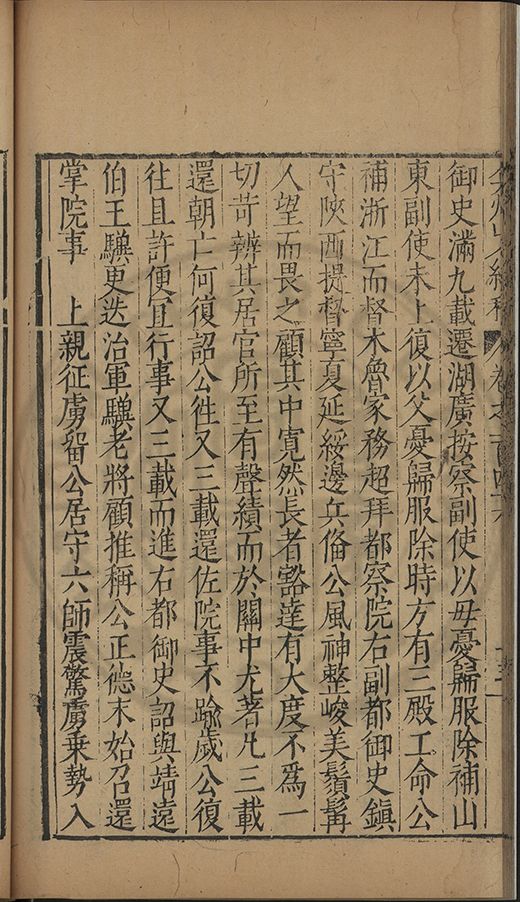 弇州山人續稿 卷之一百四十六
御史滿九載遷湖廣按察副使以母憂歸服除補山
東副使未上復以父憂歸服除時方有三殿工命公
補浙江而督木魯家務超拜都察院右副都御史鎮
守陝西提督寧夏延綏邊兵俻公風神整峻美鬚髯
人望而畏之顧其中寬然長者豁達有大度不為一
切苛辨其居官所至有聲績而於關中尤著凡三載
還朝亡何復詔公徃又三載還佐院事不踰歲公復
往且許便宜行事又三載而進右都御史詔與靖遠
伯王驥更迭治軍驥老將顧推稱公正德末始召還
掌院事 上親征虜留公居守六師震驚虜乗勢入